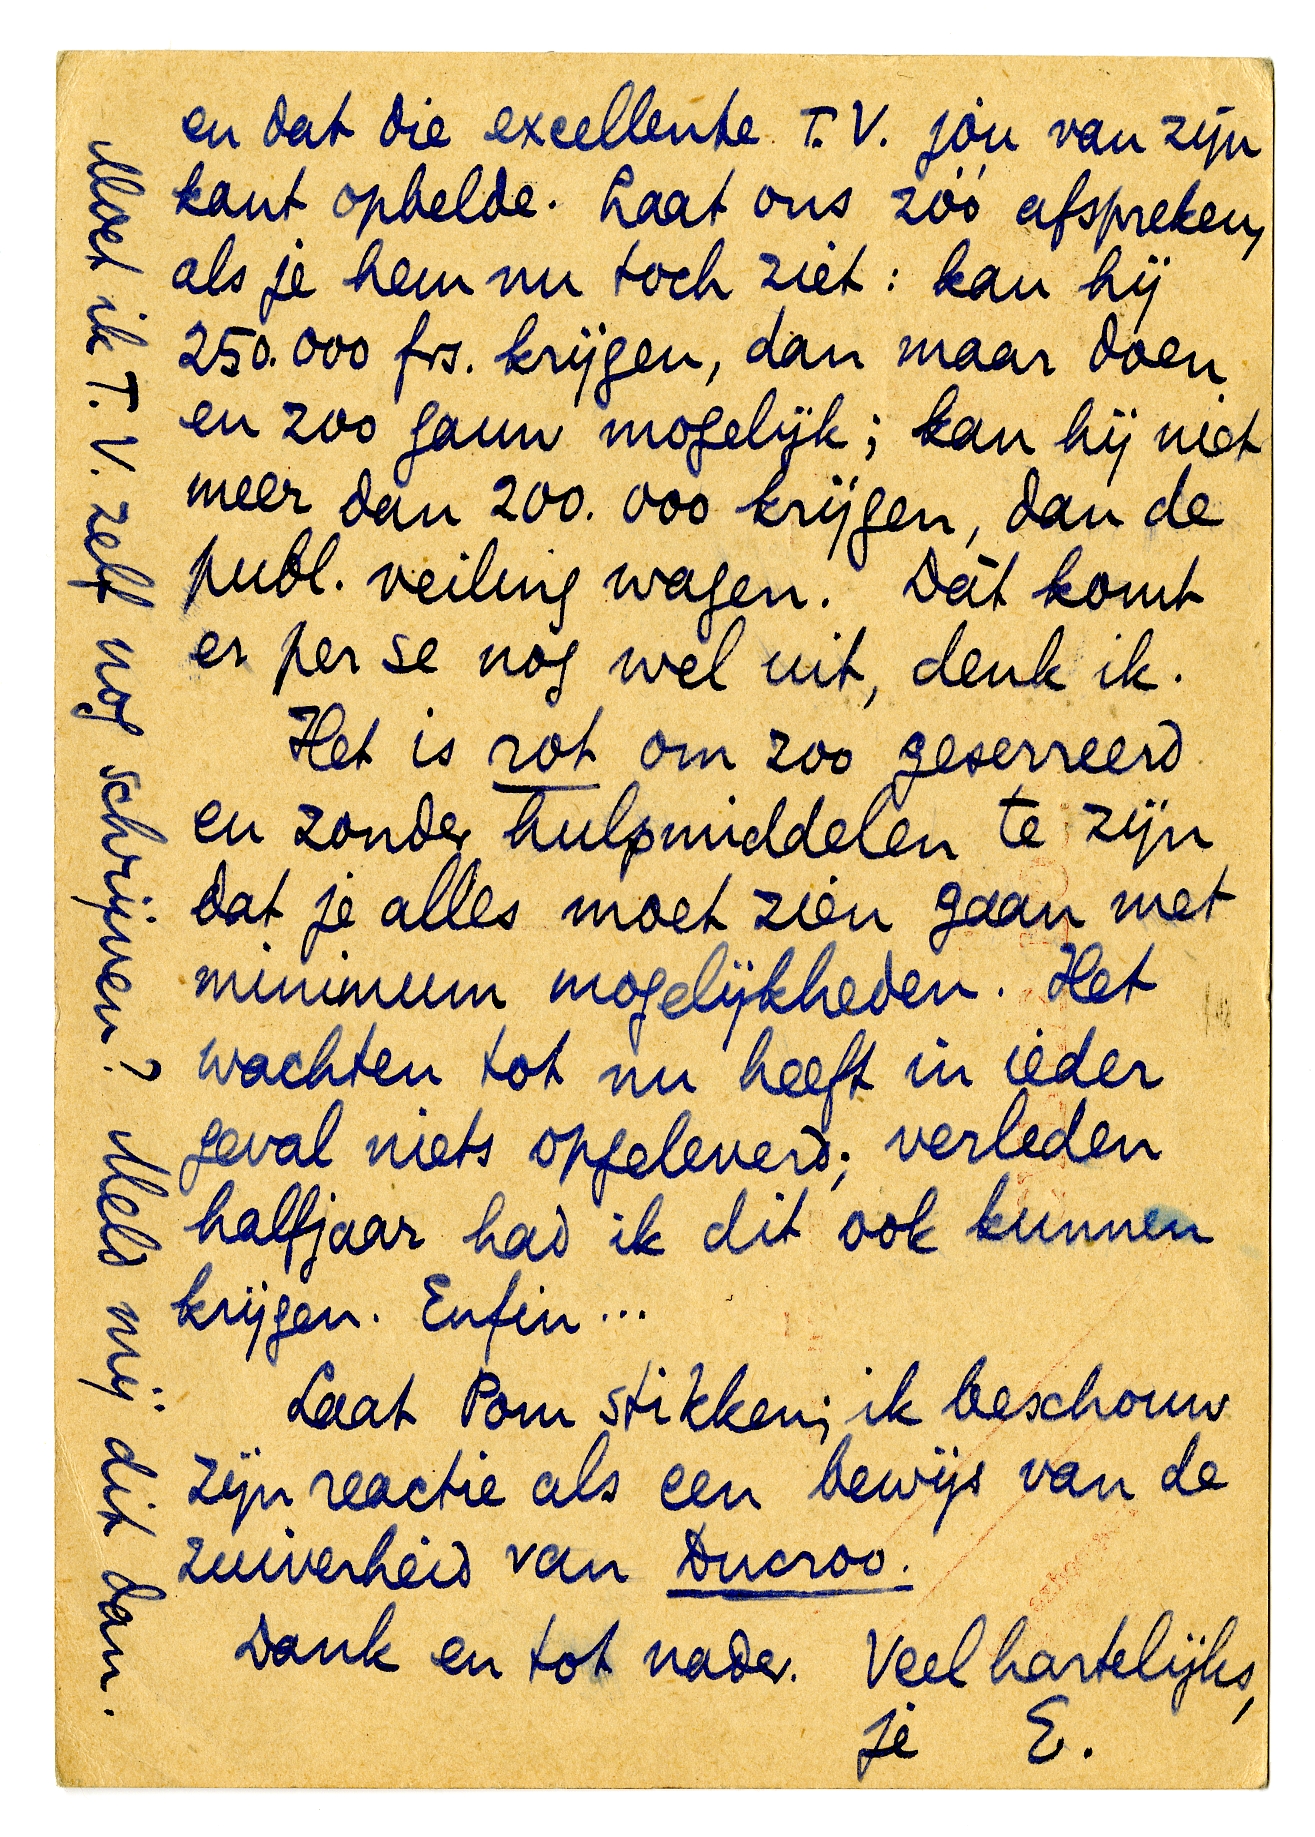 en dat die excellente T.V. jóu van zijn
kant opbelde. Laat ons zóó afspreken,
als je hem nu toch ziet: kan hij
250.000 frs. krijgen, dan maar doen
en zoo gauw mogelijk; kan hij niet
meer dan 200.000 krijgen, dan de
publ. veiling wagen. Dàt komt
er per se nog wel uit, denk ik.
Het is rot om zoo geserreerd
en zonder hulpmiddelen te zijn
dat je alles moet zien gaan met
minimum mogelijkheden. Het
wachten tot nu heeft in ieder
geval niets opgeleverd; verleden
halfjaar had ik dit ook kunnen
krijgen. Enfin...
Laat Pom stikken; ik beschouw
zijn reactie als een bewijs van de
zuiverheid van Ducroo.
Dank en tot nader. Veel hartelijks,
je E.
Moet ik T.V. zelf nog schrijven? Meld mij dit dan.